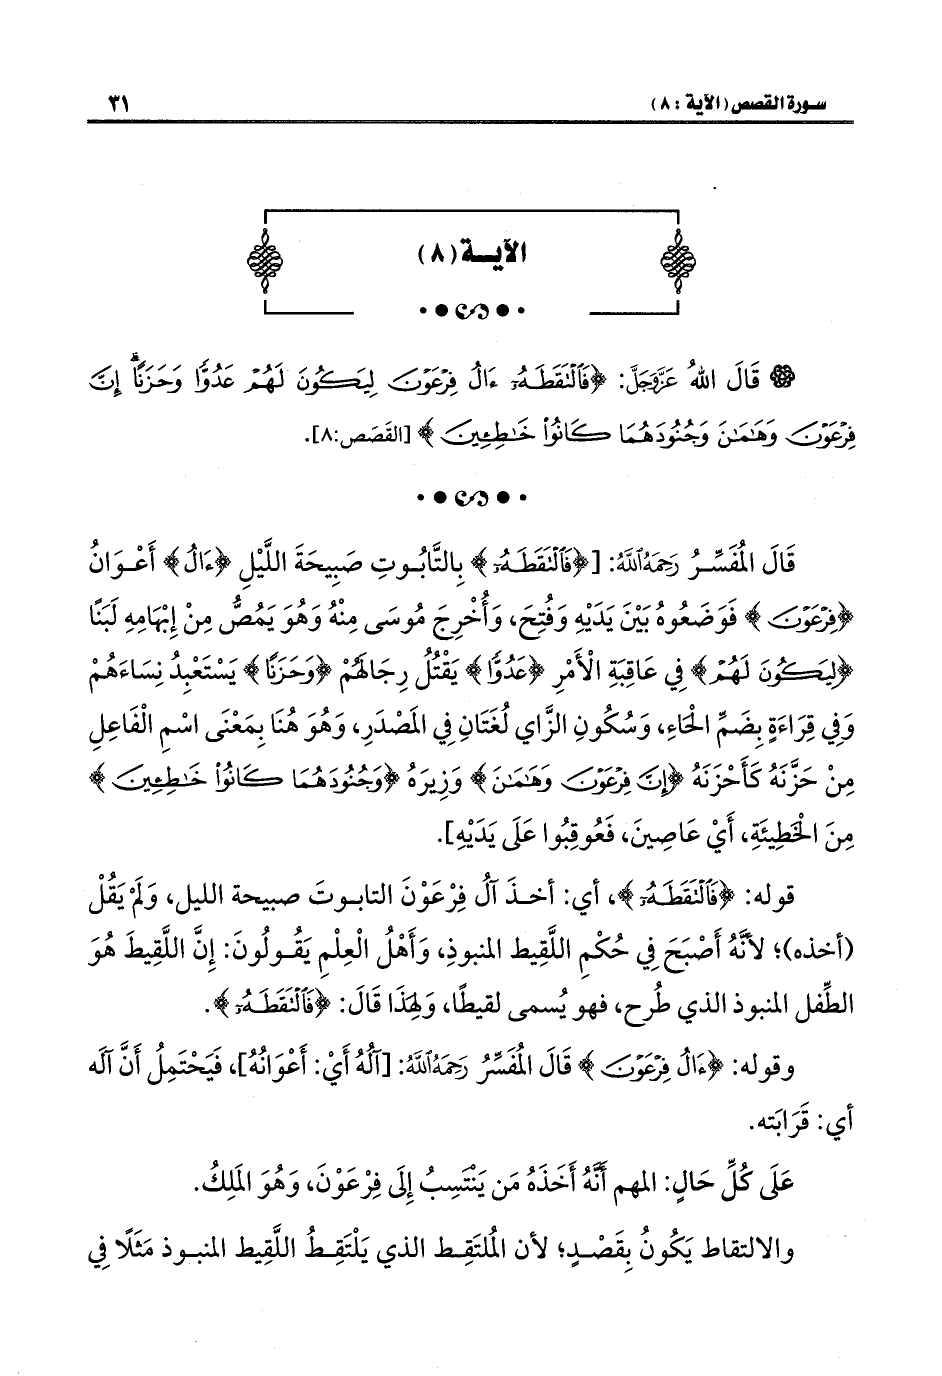 سورة القصص (الآية : ٨)
٣١
الآيــة (٨)
قَالَ اللهُ عَزَّوَجَلَّ: ﴿فَٱلْتَقَطَهُۥٓ ءَالُ فِرْعَوْنَ لِيَكُونَ لَهُمْ عَدُوًّا وَحَزَنًا ۗ إِنَّ
فِرْعَوْنَ وَهَٰمَٰنَ وَجُنُودَهُمَا كَانُوا۟ خَٰطِـِٔينَ﴾ [القَصَص:٨].
قَالَ المُفَسِّـرُ رَحِمَهُ اللَّهُ: [﴿فَٱلْتَقَطَهُۥٓ﴾ بِالتَّابُـوتِ صَبِيحَةَ اللَّيْلِ ﴿ءَالُ﴾ أَعْـوَانُ
﴿فِرْعَوْنَ﴾ فَوَضَعُوهُ بَيْنَ يَدَيْهِ وَفُتِحَ، وَأُخْرِجَ مُوسَى مِنْهُ وَهُوَ يَمُصُّ مِنْ إِبْهَامِهِ لَبَنًا
﴿لِيَكُونَ لَهُمْ﴾ فِي عَاقِبَةِ الْأَمْرِ ﴿عَدُوًّا﴾ يَقْتُلُ رِجَالَهُمْ ﴿وَحَزَنًا﴾ يَسْتَعْبِدُ نِسَاءَهُمْ
وَفِي قِرَاءَةٍ بِضَمِّ الْحَاءِ، وَسُكُونِ الزَّاي لُغَتَانِ فِي المَصْدَرِ، وَهُوَ هُنَا بِمَعْنَى اسْمِ الْفَاعِلِ
مِنْ حَزَّنَهُ كَأَحْزَنَهُ ﴿إِنَّ فِرْعَوْنَ وَهَٰمَٰنَ﴾ وَزِيرَهُ ﴿وَجُنُودَهُمَا كَانُوا۟ خَٰطِـِٔينَ﴾
مِنَ الْخَطِيئَةِ، أَيْ عَاصِينَ، فَعُوقِبُوا عَلَى يَدَيْهِ].
قوله: ﴿فَٱلْتَقَطَهُۥٓ﴾، أي: أخـذَ آلُ فِرْعَوْنَ التابـوتَ صبيحة الليل، وَلَمْ يَقُلْ
(أخذه)؛ لأَنَّهُ أَصْبَحَ فِي حُكْمِ اللَّقِيط المنبوذِ، وَأَهْلُ الْعِلْمِ يَقُـولُونَ: إِنَّ اللَّقِيطَ هُوَ
الطِّفل المنبوذ الذي طُرح، فهو يُسمى لقيطًا، وَلِهَذَا قَالَ: ﴿فَٱلْتَقَطَهُۥٓ﴾.
وقوله: ﴿ءَالُ فِرْعَوْنَ﴾ قَالَ المُفَسِّرُ رَحِمَهُ اللَّهُ: [آلُهُ أَيْ: أَعْوَانُهُ]، فَيَحْتَمِلُ أَنَّ آلَه
أي: قَرَابَته.
عَلَى كُلِّ حَالٍ: المهم أَنَّهُ أَخَذَهُ مَن يَنْتَسِبُ إِلَى فِرْعَوْنَ، وَهُوَ المَلِكُ.
والالتقاط يَكُونُ بِقَصْـدٍ؛ لأن المُلتَقِـط الذي يَلْتَقِـطُ اللَّقِيط المنبـوذ مَثَلًا فِي